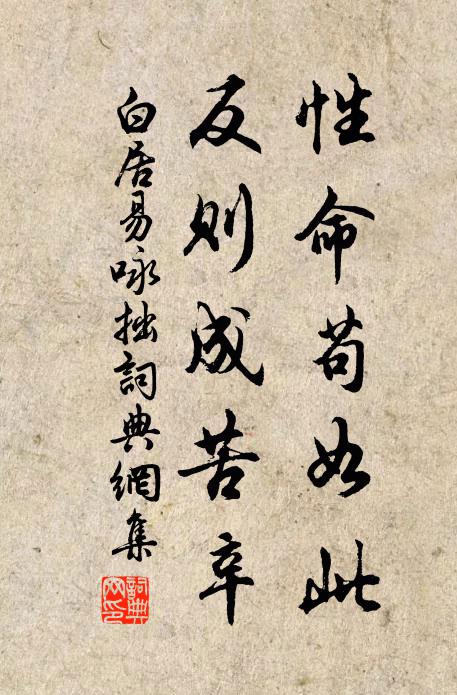 性命苟如此
反則成苦辛
白居易咏拙詞典網集
詞典網印